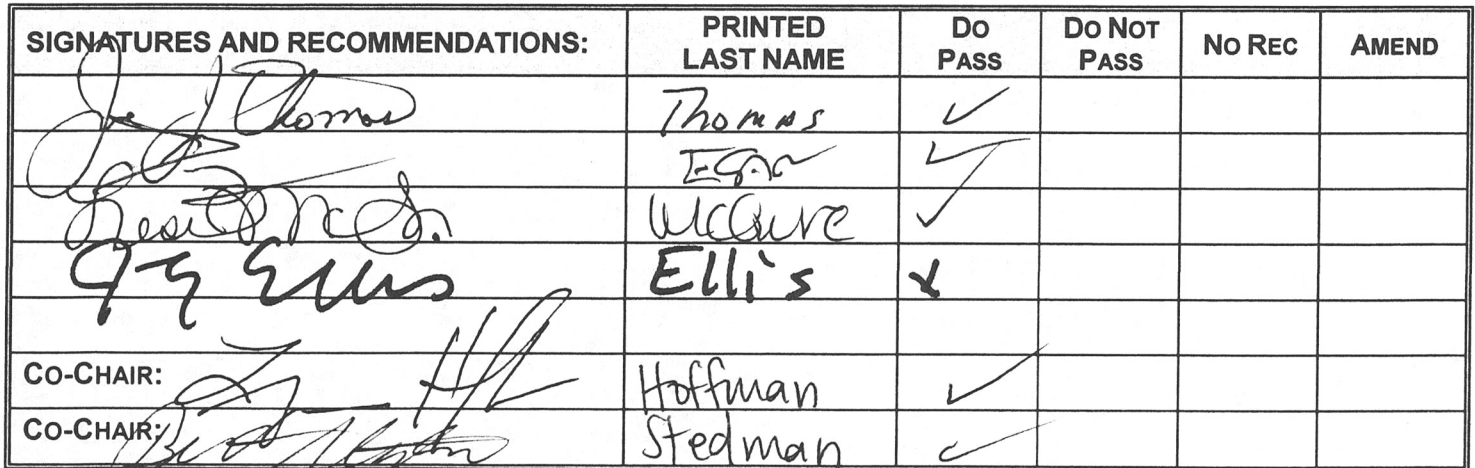 SIGNATURES AND RECOMMENDATIONS: PRINTED LAST NAME DO PASS DO NOT PASS NO REC AMEND
Joe J Thomas Thomas ✓
Egan ✓
McGuire ✓
J Ellis Ellis x
CO-CHAIR: Hoffman ✓
CO-CHAIR: Stedman ✓